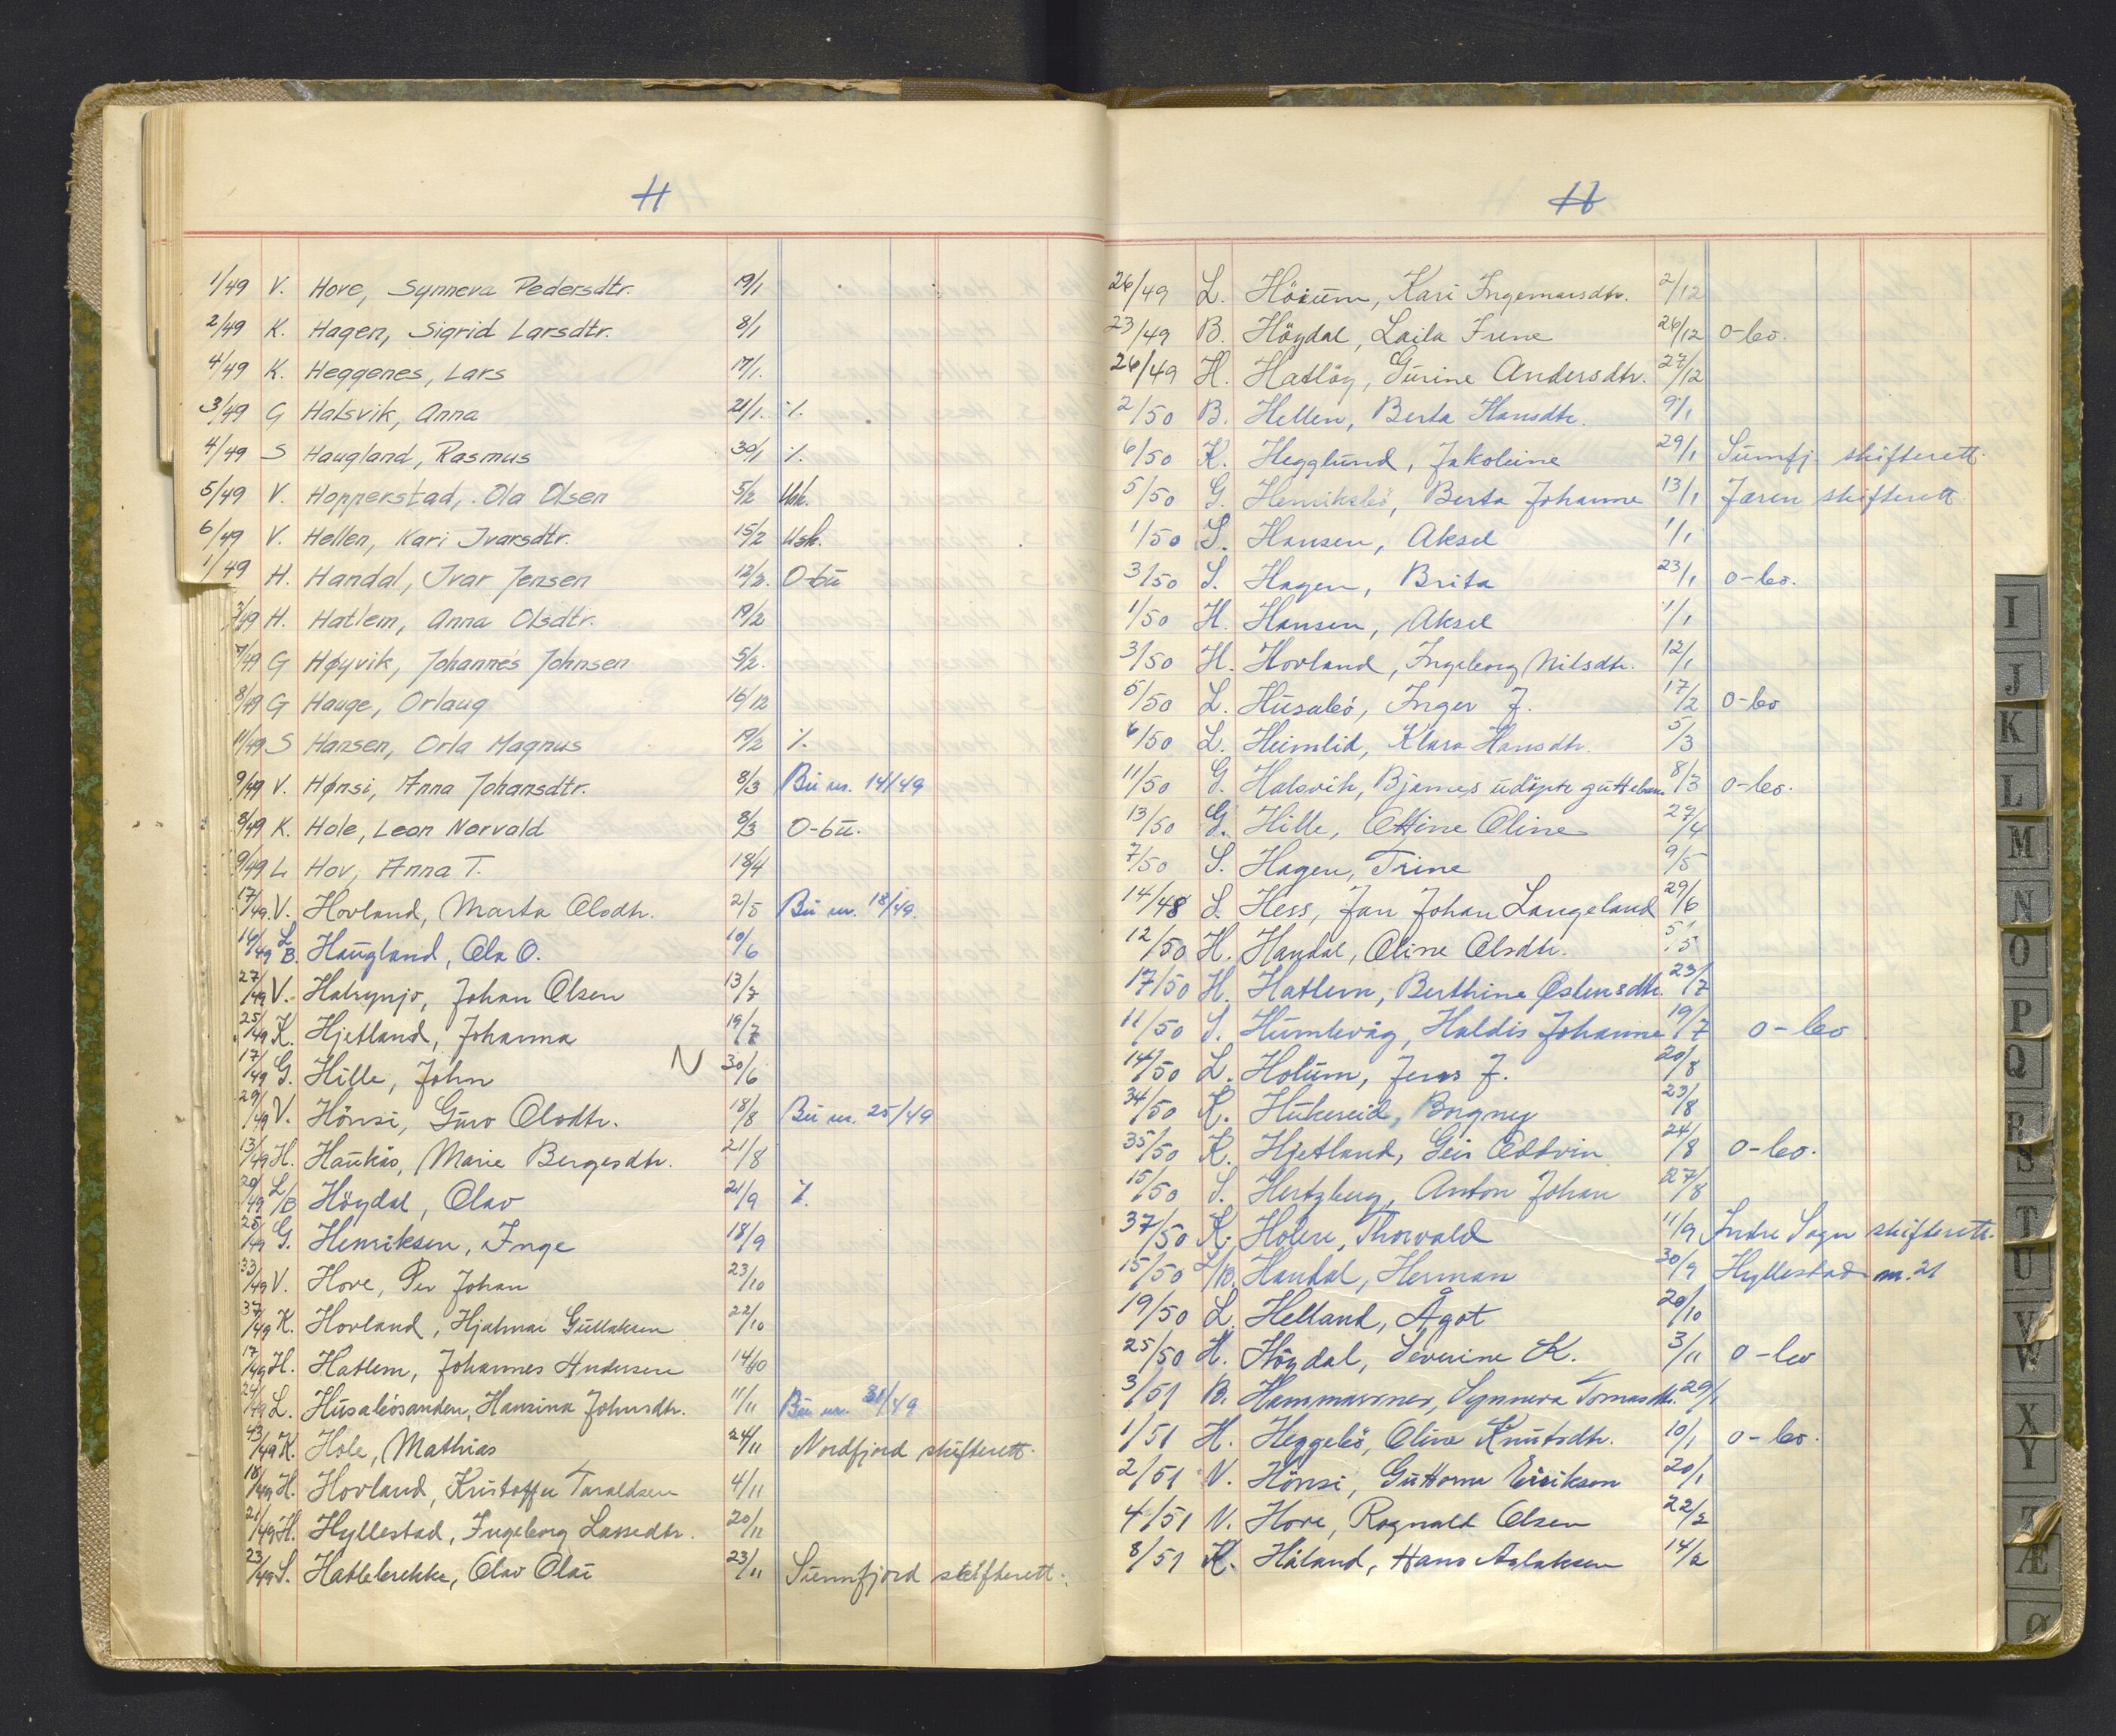 H
1/49 V. Hove, Synneva Pedersdtr. 19/1
2/49 K. Hagen, Sigrid Larsdtr. 8/1
4/49 K. Heggenes, Lars 17/1.
3/49 G Halsvik, Anna 21/1. %.
4/49 S Haugland, Rasmus 30/1 %.
5/49 V. Hopperstad, Ola Olsen 5/2 Usk.
6/49 V. Hellen, Kari Ivarsdtr. 15/2 Usk.
1/49 H. Handal, Ivar Jensen 12/2. O-bū
3/49 H. Hatlem, Anna Olsdtr. 19/2
7/49 G Høyvik, Johannes Johnsen 5/2.
8/49 G Hauge, Orlaug 16/12
11/49 S Hansen, Orla Magnus 19/2 %.
9/49 V. Hønsi, Anna Johansdtr. 8/3 Bū nr. 14/49
8/49 K. Hole, Leon Norvald 8/3 O-bū.
9/49 L Hov, Anna T. 18/4
17/49. V. Hovland, Marta Olsdtr. 2/5 Bū nr. 18/49.
16/49 L B. Haūgland, Ola O. 10/6
27/49 V. Halrynjo, Johan Olsen 13/7
25/49 K. Hjetland, Johanna 19/7
17/49 G. Hille, John N 30/6
29/49 V. Hönsi, Gūro Olsdtr. 18/8 Bū nr. 25/49
13/49 H. Haūkås, Marie Bergesdtr. 21/8
20/49 L/B Höydal, Olav 21/9 %.
25/49 G. Henriksen, Inge 18/9
33/49 V. Hove, Per Johan 23/10
37/49 K. Hovland, Hjalmar Gūllaksen 22/10
17/49 H. Hatlem, Johannes Andersen 14/10
24/49 L. Hūsabösanden, Hansina Johnsdtr. 11/11 Bū nr. 31/49
43/49 K. Hole, Mathias 24/11 Nordfjord skifterett.
18/49 H. Hovland, Kristoffer Taraldsen 4/11
21/49 H. Hyllestad, Ingeborg Lassedtr. 20/11
23/49 S. Hatlebrekke, Olav Olai 23/11 Sūnnfjord skifterett.
H
26/49 L. Höiūm, Kari Ingemarsdtr. 2/12
23/49 B. Höydal, Laila Irene 26/12 o-bo.
26/49 H. Hatlöy, Gūrine Andersdtr. 27/12
2/50 B. Hellen, Berta Hansdtr. 9/1
6/50 K. Hegglūnd, Jakobine 29/1 Sūnnfj. skifterett.
5/50 G. Henriksbö, Berta Johanne 13/1 Jæren skifterett
1/50 S. Hansen, Aksel 1/1
3/50 S. Hagen, Brita 23/1 o-bo.
1/50 H. Hansen, Aksel 1/1
3/50 H. Hovland, Ingeborg Nilsdtr. 12/1
5/50 L. Hūsabö, Inger J. 17/2 o-bo
6/50 L. Heimlid, Klara Hansdtr. 5/3
11/50 G. Halsvik, Bjarnes ūdöpte gūttebarn 8/3 o-bo.
13/50 G. Hille, Ottine Oline 27/4
7/50 S. Hagen, Trine 9/5
14/48 S. Hess, Jan Johan Langeland 29/6
12/50 H. Handal, Oline Olsdtr. 5/5
17/50 H. Hatlem, Berthine Østensdtr. 23/7
11/50 S. Hūmlevåg, Haldis Johanne 19/7 o-bo
14/50 L. Holūm, Jens J. 20/8
34/50 K. Hūkereid, Borgny 23/8
35/50 K. Hjetland, Geir Oddvin 24/8 o-bo.
15/50 S. Hertzberg, Anton Johan 27/8
37/50 K. Holen, Thorvald 11/9 Indre Sogn skifterett.
15/50 L/B. Handal, Herman 30/9 Hyllestad nr. 21
19/50 L. Helland, Ågot 20/10
25/50 H. Höydal, Severine K. 3/11 o-bo
3/51 B. Hammarsnes, Synneva Tomasdtr. 29/1
1/51 H. Heggebö, Oline Knūtsdtr. 10/1 o-bo.
2/51 V. Hönsi, Gūttorm Eirikson 20/1
4/51 V. Hove, Ragnald Olsen 22/2
8/51 K. Håland, Hans Aslaksen 14/2
I
J
K
L
M
N
O
P
Q
R
S
T
U
V
W
X
Y
Z
Æ
Ø